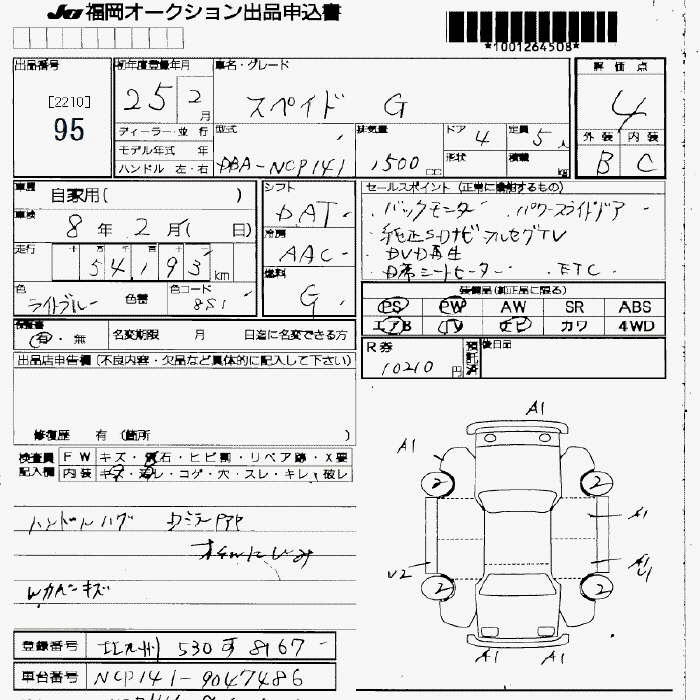 JU 福岡オークション出品申込書
*1001264508*
出品番号
[2210]
95
初年度登録年月
25 2月
車名・グレード
スペイド G
評価点
4
外装 内装
B C
ディーラー・並行
モデル年式 年
ハンドル 左・右
型式
DBA-NCP141
排気量
1500 cc
ドア 4
形状
定員 5人
積載 kg
車歴 自家用( )
車検 8年 2月( 日)
走行 54,193 km
色 ライトブルー 色替
色コード 8S1
シフト
DAT
冷房
AAC
燃料
G
セールスポイント (正常に機能するもの)
・バックモニター ・パワースライドドア
・純正SDナビ フルセグTV
・DVD再生
・ シートヒーター ・ETC
装備品(純正品に限る)
PS PW AW SR ABS
エアB TV ナビ カワ 4WD
有・無 名変期限 月 日迄に名変できる方
R券
10210円
預託済
後日品
出品店申告欄(不良内容・欠品など具体的に記入して下さい)
修復歴 有 (箇所 )
検査員記入欄
FW キズ・飛石・ヒビ割・リペア跡・X要
内装 キズ・汚レ・コゲ・穴・スレ・キレ・破レ
ハンドルハゲ
Wカバーキズ
A1
A1
2 2
A1
U2
A1
U1
2 2
A1 A1
登録番号 北九州 530 す 8167
車台番号 NCP141-9047486